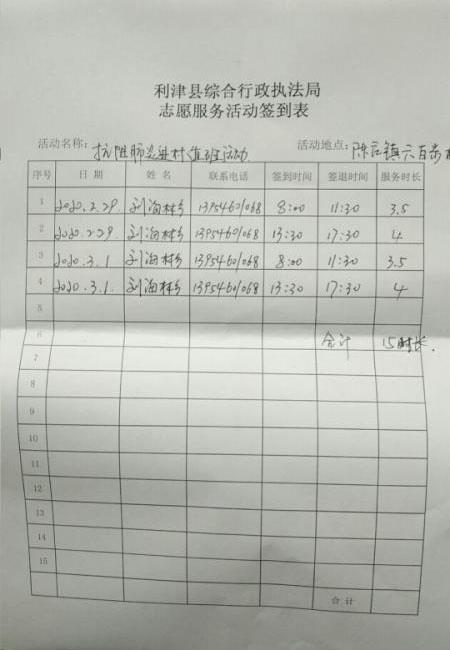 利津县综合行政执法局
志愿服务活动签到表
活动名称: 抗阻肺炎进村值班活动 活动地点: 陈庄镇六百步
序号 日 期 姓 名 联系电话 签到时间 签退时间 服务时长
1 2020.2.29 刘海林 13954601068 8:00 11:30 3.5
2 2020.2.29 刘海林 13954601068 13:30 17:30 4
3 2020.3.1 刘海林 13954601068 8:00 11:30 3.5
4 2020.3.1. 刘海林 13954601068 13:30 17:30 4
5
6 合计 15时长.
7
8
9
10
11
12
13
14
15
合 计